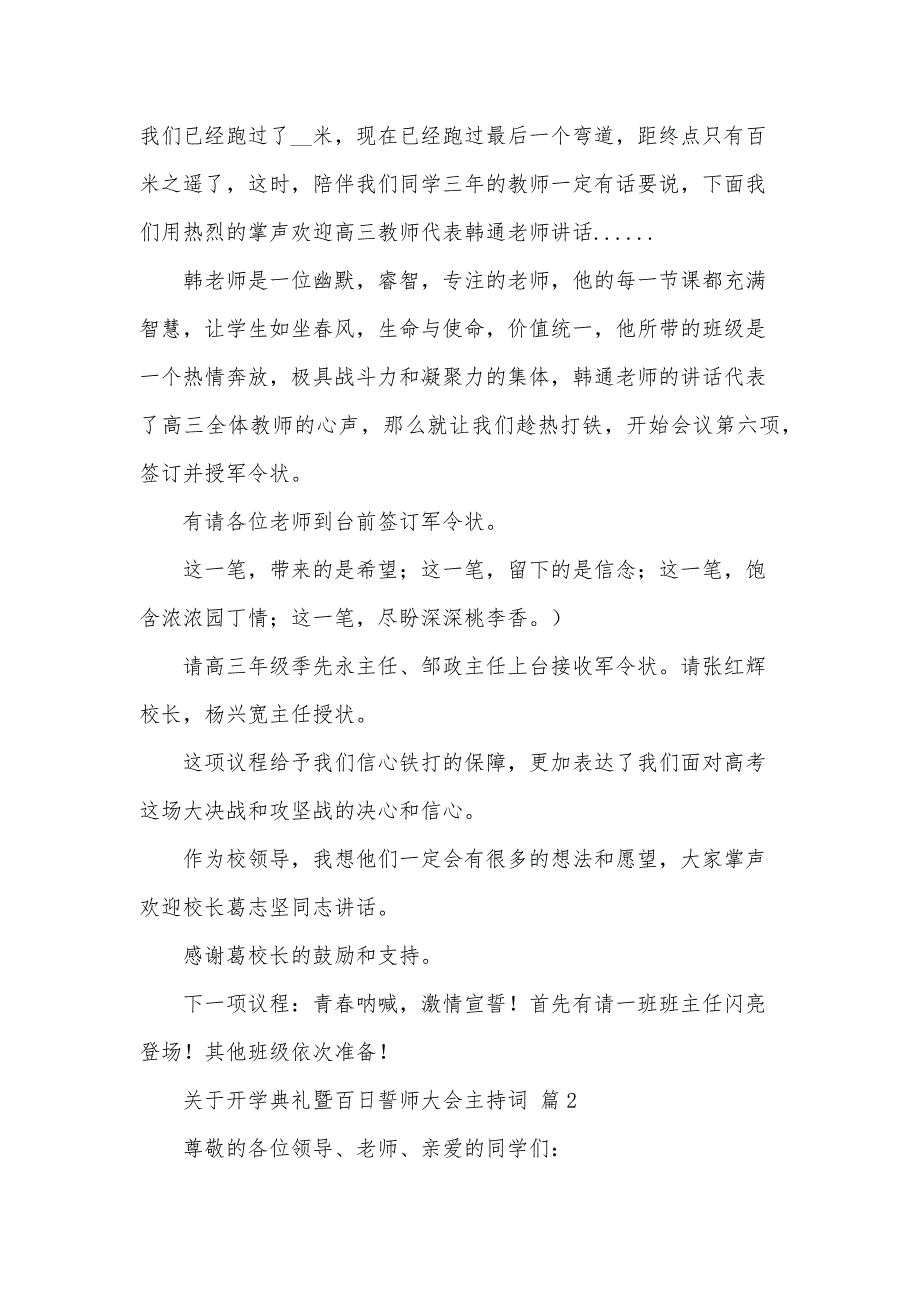 我们已经跑过了__米，现在已经跑过最后一个弯道，距终点只有百
米之遥了，这时，陪伴我们同学三年的教师一定有话要说，下面我
们用热烈的掌声欢迎高三教师代表韩通老师讲话......
韩老师是一位幽默，睿智，专注的老师，他的每一节课都充满
智慧，让学生如坐春风，生命与使命，价值统一，他所带的班级是
一个热情奔放，极具战斗力和凝聚力的集体，韩通老师的讲话代表
了高三全体教师的心声，那么就让我们趁热打铁，开始会议第六项，
签订并授军令状。
有请各位老师到台前签订军令状。
这一笔，带来的是希望；这一笔，留下的是信念；这一笔，饱
含浓浓园丁情；这一笔，尽盼深深桃李香。）
请高三年级季先永主任、邹政主任上台接收军令状。请张红辉
校长，杨兴宽主任授状。
这项议程给予我们信心铁打的保障，更加表达了我们面对高考
这场大决战和攻坚战的决心和信心。
作为校领导，我想他们一定会有很多的想法和愿望，大家掌声
欢迎校长葛志坚同志讲话。
感谢葛校长的鼓励和支持。
下一项议程：青春呐喊，激情宣誓！首先有请一班班主任闪亮
登场！其他班级依次准备！
关于开学典礼暨百日誓师大会主持词 篇2
尊敬的各位领导、老师、亲爱的同学们：